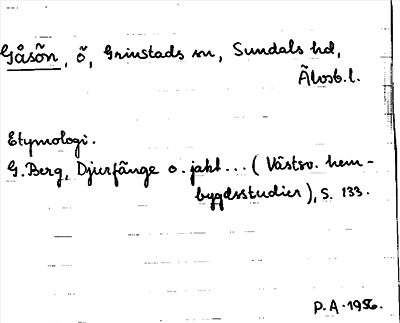 Gåsön, ö, Grinstads sn, Sundals hd,
Älvsb. l.
Etymologi.
G. Berg, Djurfänge o. jakt... (Västsv. hem-
bygdsstudier), s. 133.
P. A. 1956.